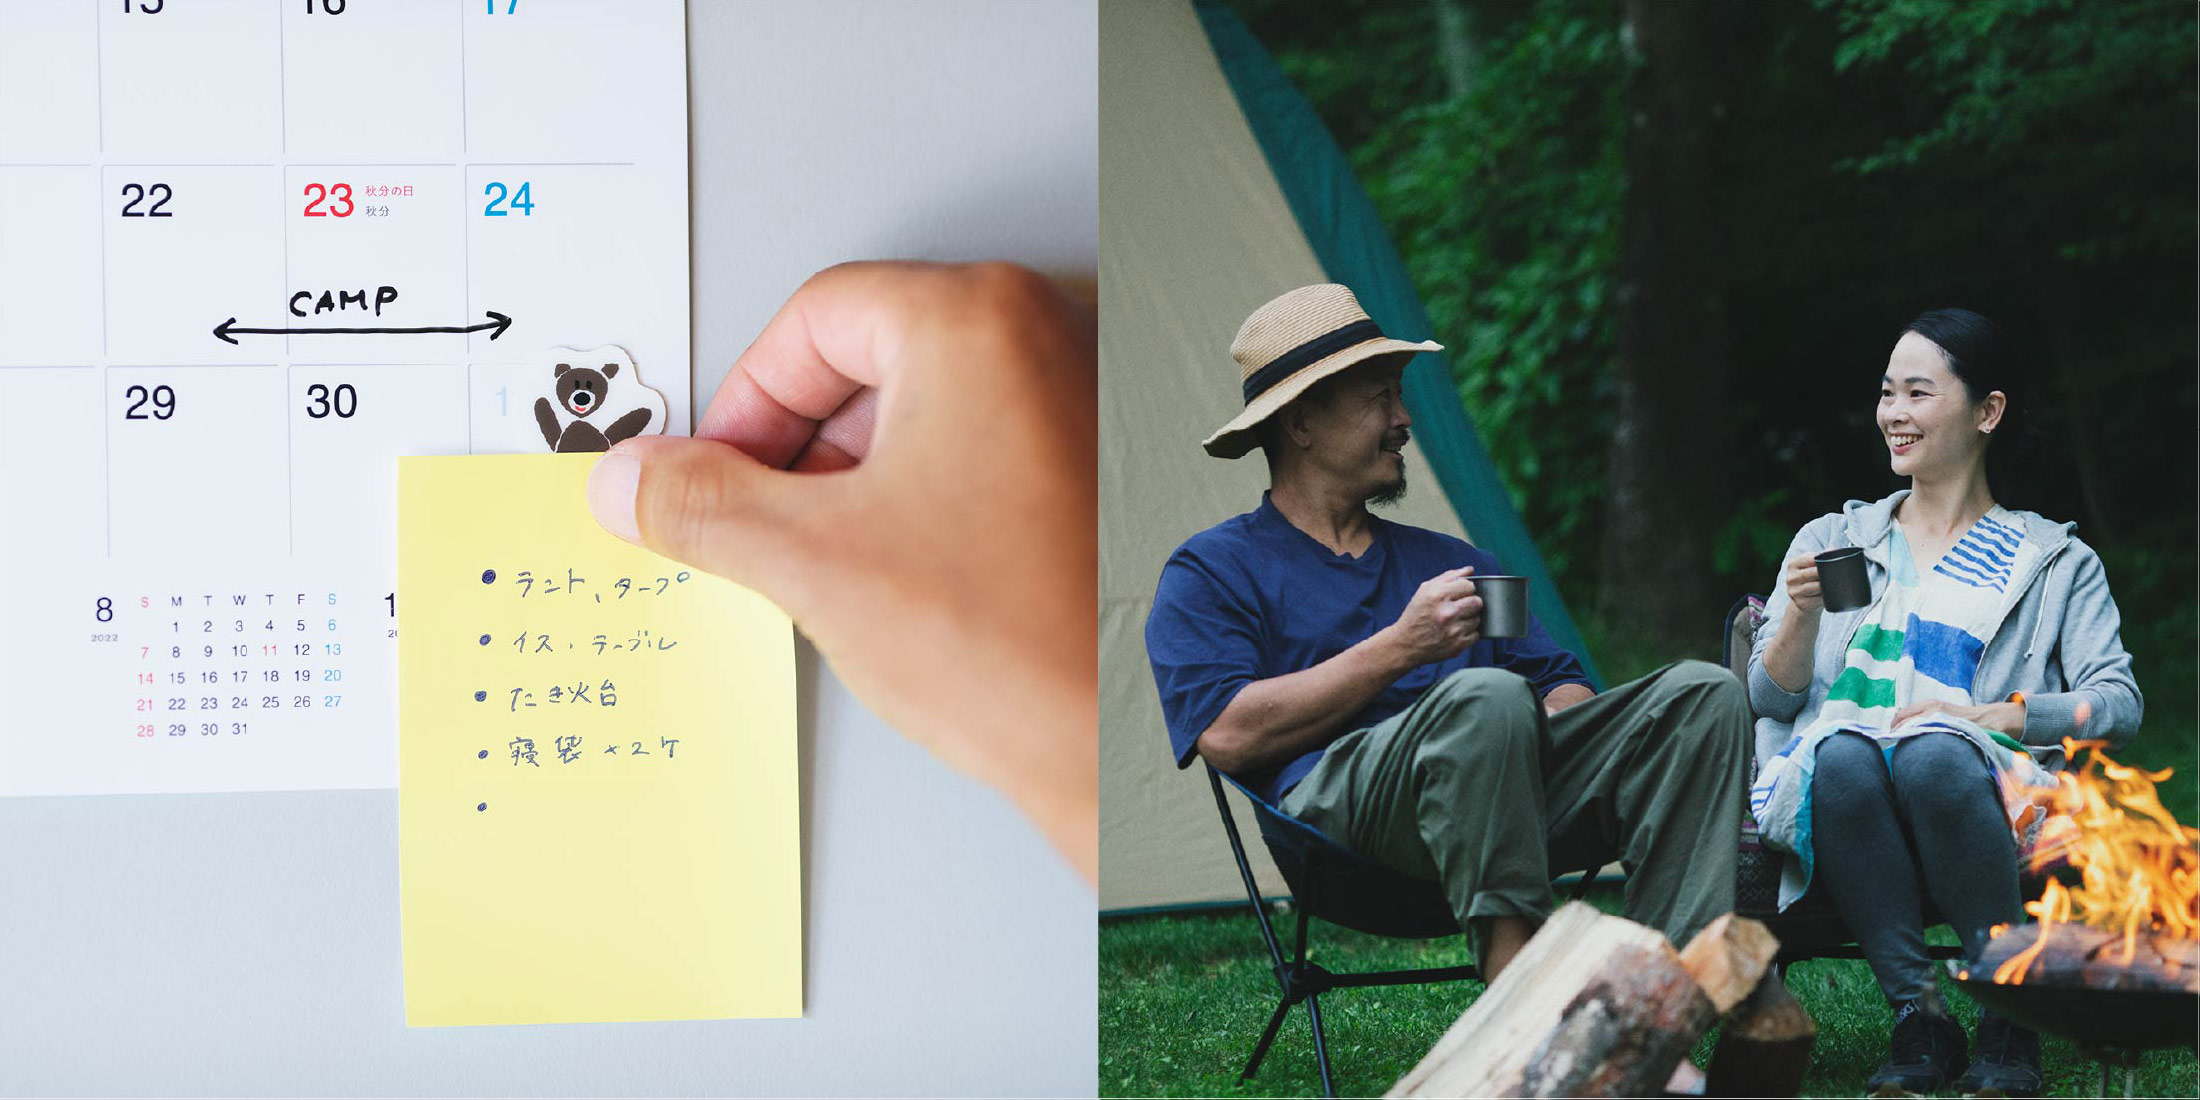 15 16 17
22 23 秋分の日 24
秋分
CAMP
29 30 1
8 S M T W T F S
2022 1 2 3 4 5 6
7 8 9 10 11 12 13
14 15 16 17 18 19 20
21 22 23 24 25 26 27
28 29 30 31
1
• テント、タープ
• イス、テーブル
• たき火台
• 寝袋×2ケ
•